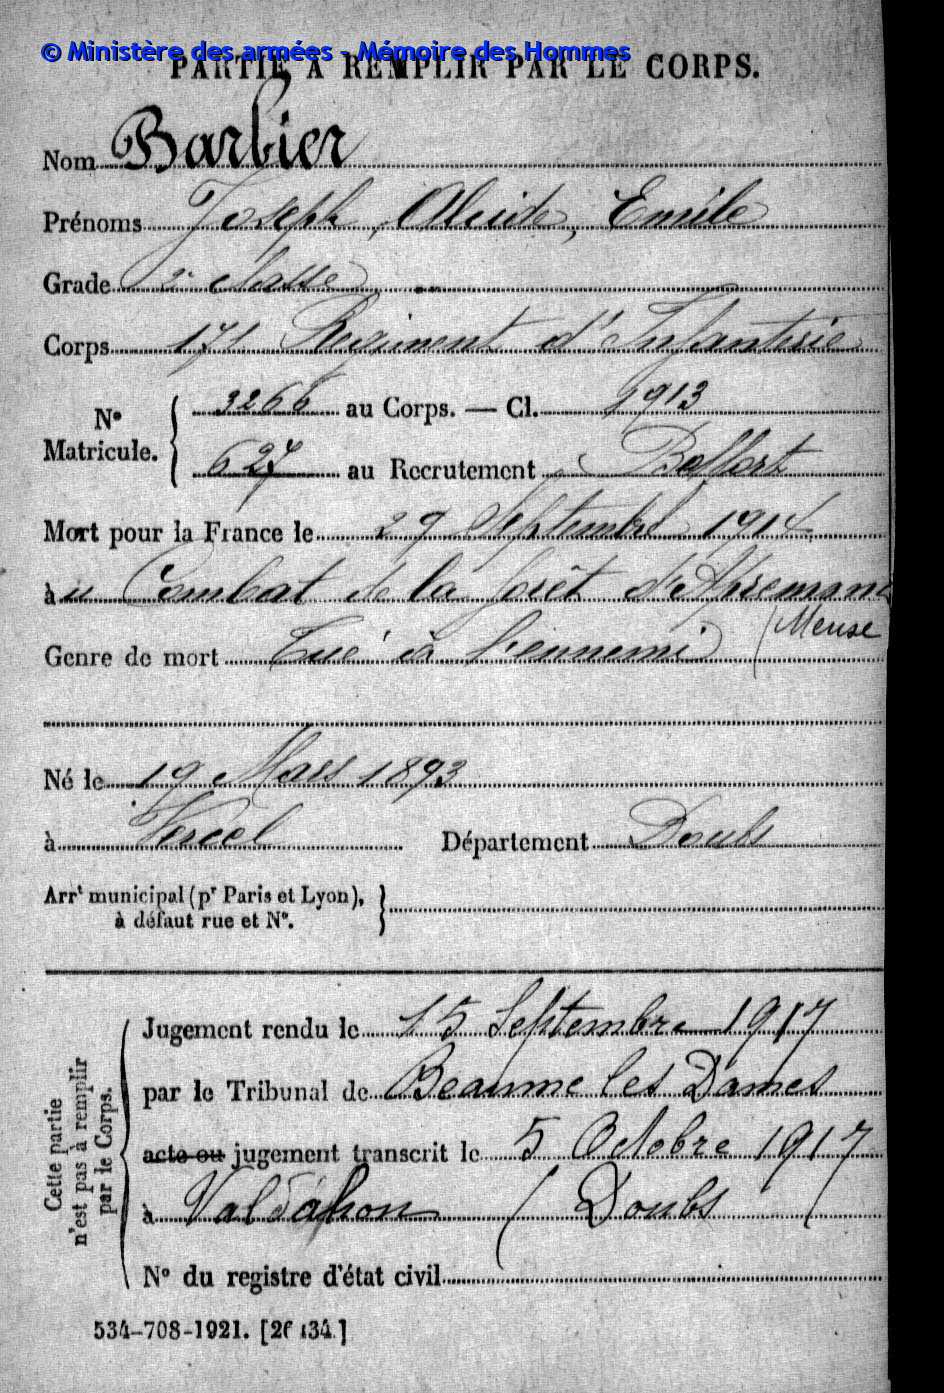 © Ministère des armées - Mémoire des Hommes
PARTIE A REMPLIR PAR LE CORPS.
Nom Barbier
Prénoms Joseph, Alcide, Emile
Grade 2e classe
Corps 171 Regiment d'Infanterie
N°
Matricule.
3266 au Corps. — Cl. 1913
627 au Recrutement Belfort
Mort pour la France le 29 Septembre 1914
àu Combat de la forêt d'Apremont
(Meuse
Genre de mort Tué à l'ennemi
Né le 19 Mars 1893
à Vercel Département Doubs
Arrt municipal (pr Paris et Lyon),
à défaut rue et N°.
Cette partie
n'est pas à remplir
par le Corps.
Jugement rendu le 15 Septembre 1917
par le Tribunal de Beaume les Dames
acte ou jugement transcrit le 5 Octobre 1917
à Valdahon (Doubs)
N° du registre d'état civil
534-708-1921. [26434.]